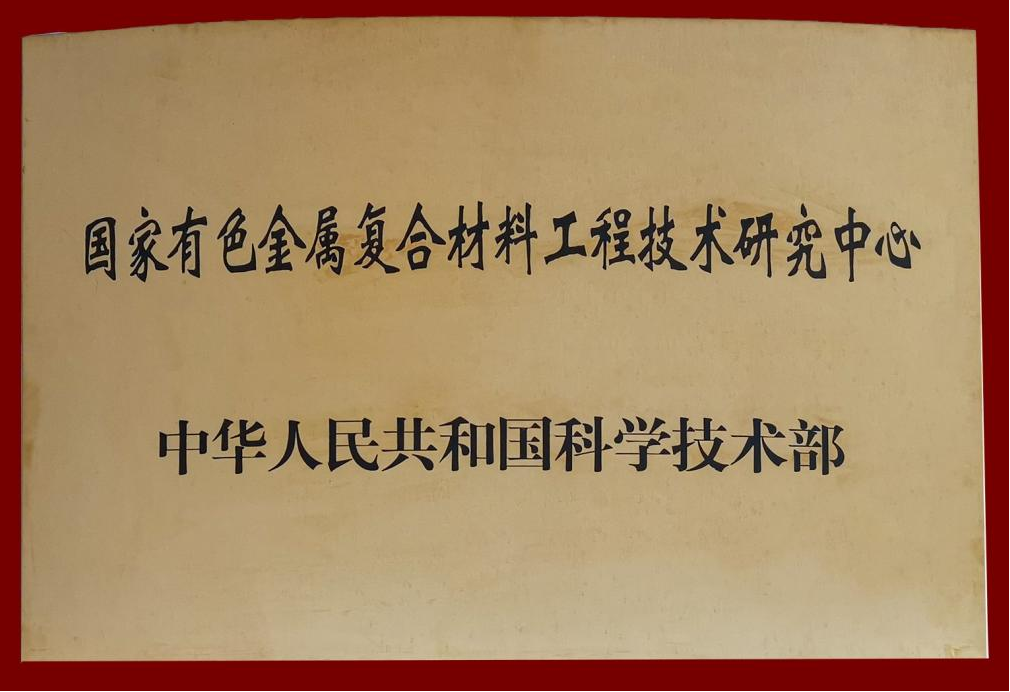 国家有色金属复合材料工程技术研究中心
中华人民共和国科学技术部